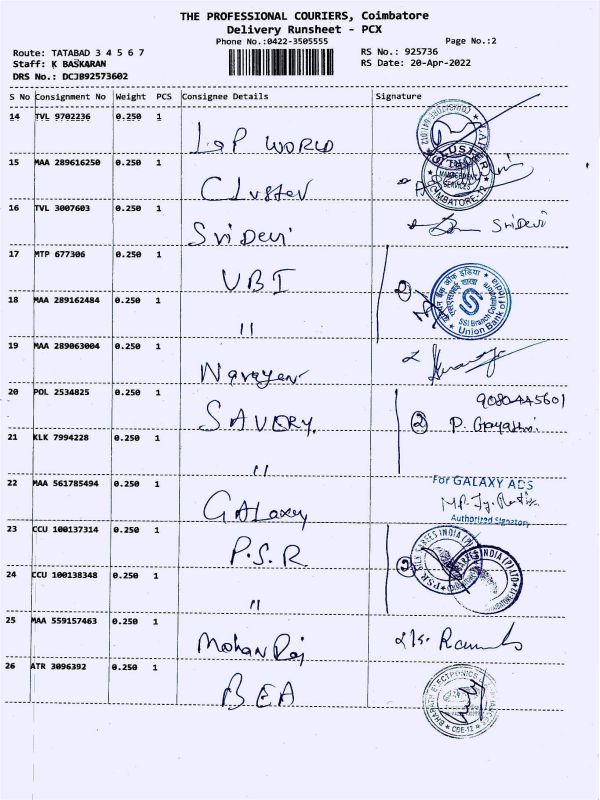 THE PROFESSIONAL COURIERS, Coimbatore
Delivery Runsheet - PCX
Phone No.:0422-3505555 Page No.:2
Route: TATABAD 3 4 5 6 7 RS No.: 925736
Staff: K BASKARAN RS Date: 20-Apr-2022
DRS No.: DCJB92573602
S No Consignment No Weight PCS Consignee Details Signature
14 TVL 9702236 0.250 1
WORLD
15 MAA 289616250 0.250 1
Cluster
CLUSTER MANAGEMENT SERVICES COIMBATORE-12
16 TVL 3007603 0.250 1
Sri Devi Sri Devi
17 MTP 677306 0.250 1
UBI
SSI Branch Coimbatore Union Bank of India
18 MAA 289162484 0.250 1
"
19 MAA 289063004 0.250 1
Narayan
20 POL 2534825 0.250 1
SAVERY. 9080445601
2 P. Gayathri
21 KLK 7994228 0.250 1
"
22 MAA 561785494 0.250 1
For GALAXY ADS
GALaxy
Authorized Signatory
23 CCU 100137314 0.250 1
P.S.R
2
24 CCU 100138348 0.250 1
"
25 MAA 559157463 0.250 1
Mohan Raj
26 ATR 3096392 0.250 1
BEA
CBE-12